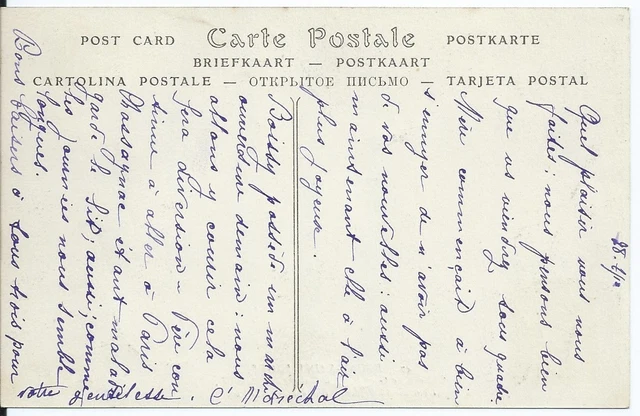 POST CARD Carte Postale POSTKARTE
BRIEFKAART — POSTKAART
CARTOLINA POSTALE — ОТКРЫТОЕ ПИСЬМО — TARJETA POSTAL
28.
Quel plaisir vous nous
faites; nous pensons bien
que vs viendrez tous quatre.
Mère commençait à bien
s'ennuyer de n'avoir pas
d vos nouvelles: aussi
maintenant elle à l'air
plus joyeuse.
Boissy possède un
ouverture demain: nous
allons y courir cela
fera diversion — Père con
tinue à aller à Paris
Chassagnac étant malade
garde le lit; aussi, comme
les journées nous semble
longues.
Bons baisers à tous trois pour
votre gentillesse. C. Maréchal